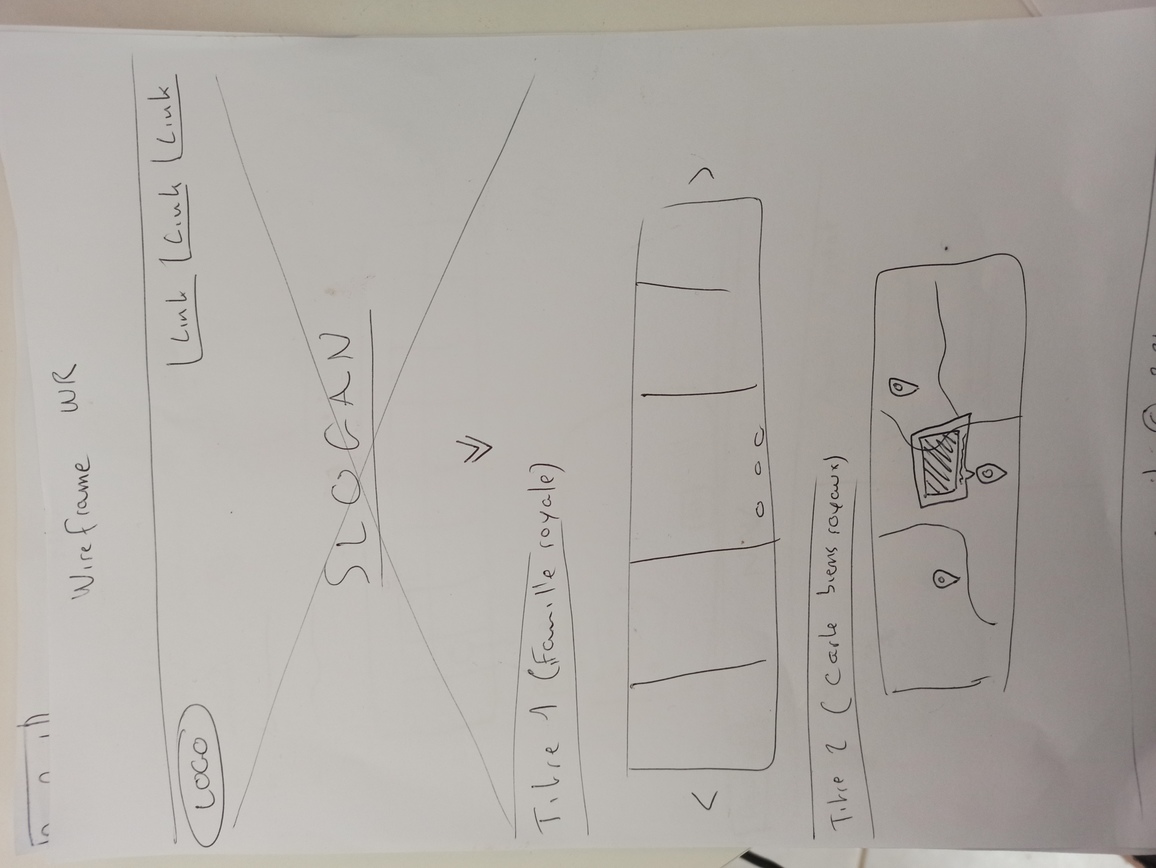 Wireframe WR
LOGO Link Link Link
SLOGAN
Titre 1 (Famille royale)
< >
Titre 2 (Carte biens royaux)
©